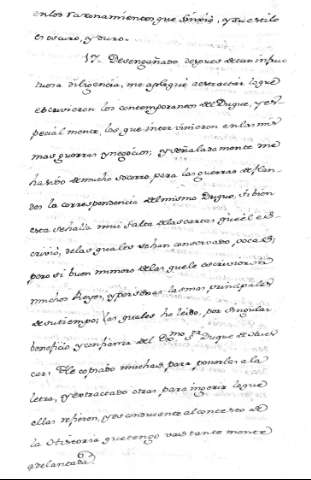 en los razonamientos que finxió, y su estilo
es oscuro, y duro.
17. Desengañado despues de tan infruc
tuosa diligencia, me apliqué a extractar lo que
escrivieron los contemporaneos del Duque, y es-
pecial mente, los que intervinieron en las mis
mas guerras y negocios; y señalada mente me
ha sido de mucho socorro, para las guerras de Flan-
des la correspondencia del mismo Duque, si bien
esta se halla mui falta de las cartas que él es-
crivió, de las quales se han conservado pocas;
pero si buen numero de las que le escrivieron
muchos Reyes, y personas las mas principales
de su tiempo; las quales he leido, por singular
beneficio y confianza del Exmo. Sr. Duque de Hues
car. He copiado muchas para ponerlas a la
letra, y extractado otras para ingerir lo que
ellas refieren, y es conducente al contexto de
la Historia que tengo vastante mente
adelantada.